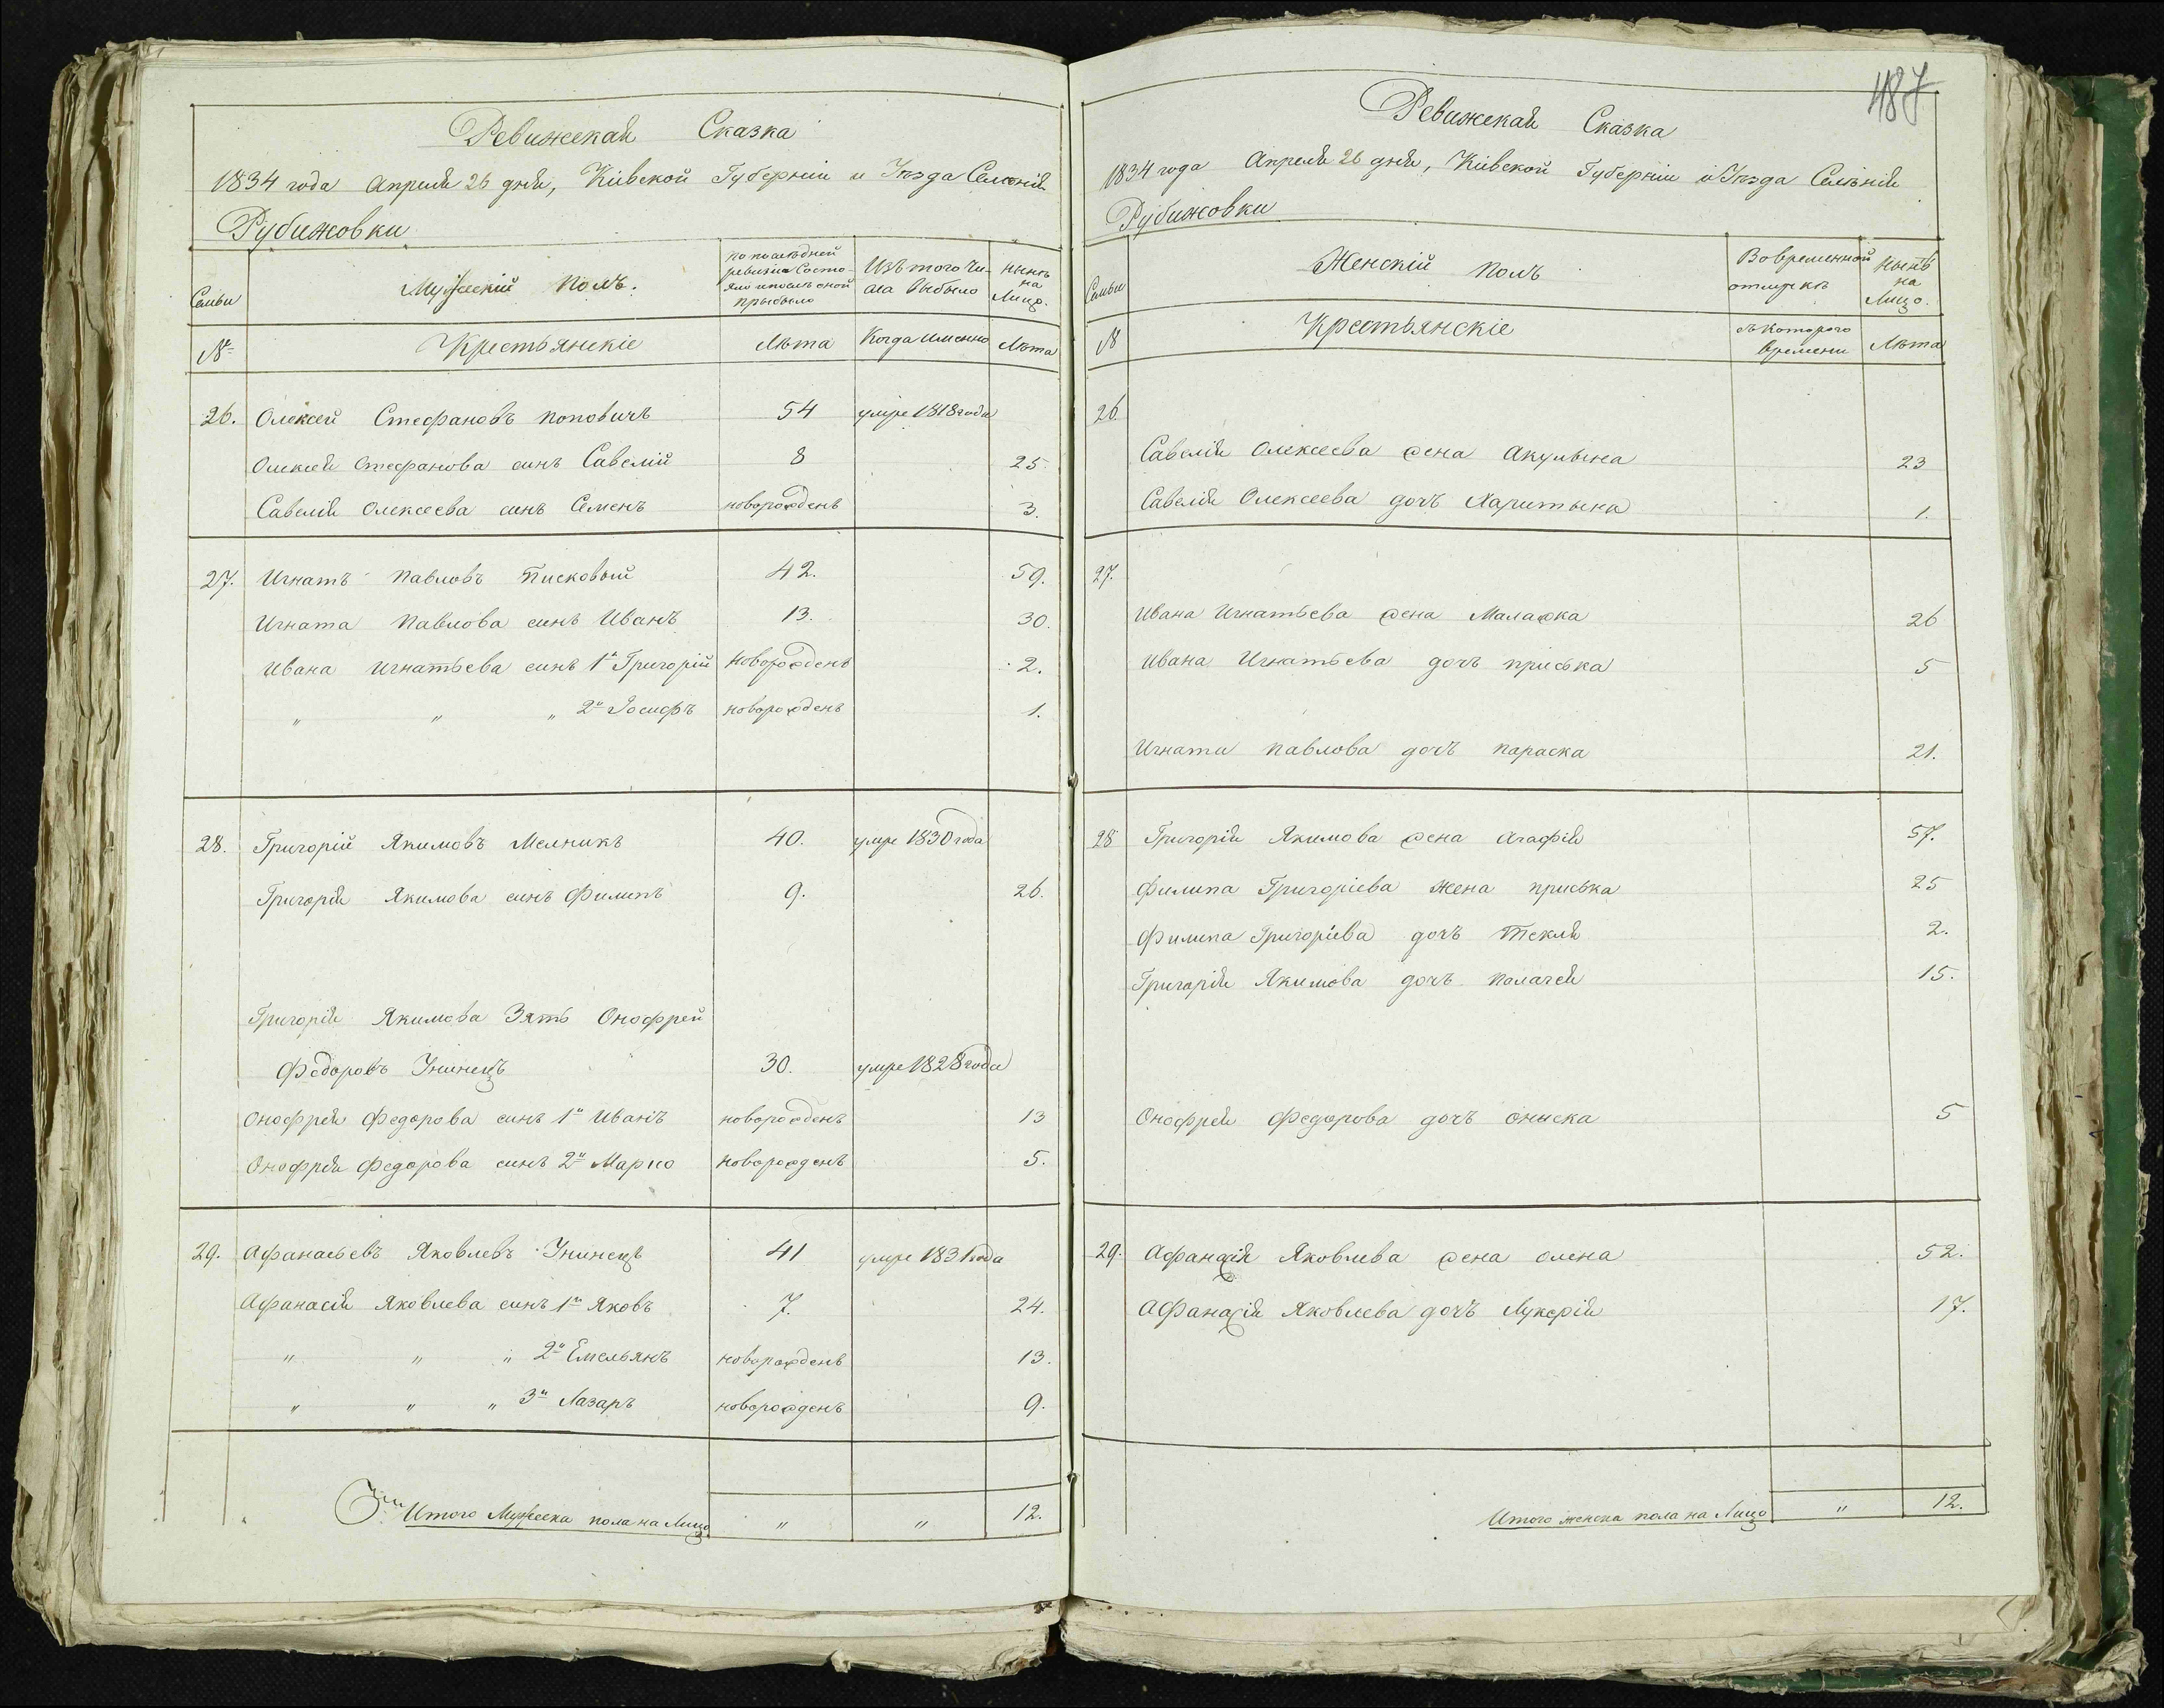 Ревижская Сказка
1834 года Апреля 26 дня, Кіевской Губерніи и Уезда Селенія
Рубижовки
Семьи
Мужескій Полъ.
по последней
ревизіи состо-
яло и после оной
прыбыло
Изъ того чи-
сла выбыло
ныне
на
Лицо.
№
Крестьянскіе
Лѣта
Когда именно
Лѣта
26. Олексей Стефановъ Поповичъ 54 умре 1818 года
Олексея Стефанова синъ Савелій 8 25.
Савелія Олексеева синъ Семенъ новорожденъ 3.
27. Игнатъ Павловъ Писковый 42. 59.
Игната Павлова синъ Иванъ 13. 30.
Ивана Игнатьева синъ 1й Григорій новорожденъ 2.
" " " 2й Іосифъ новорожденъ 1.
28. Григорій Якимовъ Мелникъ 40. умре 1830 года
Григорія Якимова синъ Филипъ 9. 26.
Григорія Якимова Зять Онофрей
Федоровъ Унинецъ 30. умре 1828 года
Онофрея Федорова синъ 1й Иванъ новорожденъ 13
Онофрея Федорова синъ 2й Марко новорожденъ 5.
29. Афанасьевъ Яковлевъ Унинецъ 41 умре 1831 года
Афанасія Яковлева синъ 1й Яковъ 7. 24.
" " " 2й Емельянъ новорожденъ 13.
" " " 3й Лазаръ новорожденъ 9.
Итого Мужеска пола на Лицо " " 12.
487
Ревижская Сказка
1834 года Апреля 26 дня, Кіевской Губерніи и Уезда Селенія
Рубижовки
Семьи
Женскій полъ
Во временной
отлучкѣ
ныне
на
Лицо.
№
Крестьянскіе
съ которого
времени
Лѣта
26.
Савелія Олексеева жена Акулына 23
Савелія Олексеева дочъ Харитына 1.
27.
Ивана Игнатьева жена Малашка 26
Ивана Игнатьева дочъ приська 5
Игната Павлова дочъ параска 21.
28 Григорія Якимова жена Агафія 57.
Филипа Григоріева жена приська 25
Филипа Григоріева дочъ Текля 2.
Григорія Якимова дочъ Палагея 15.
Онофрея Федорова дочъ ониска 5
29. Афанасія Яковлева жена олена 52.
Афанасія Яковлева дочъ Лукерія 17.
Итого женска пола на Лицо " 12.